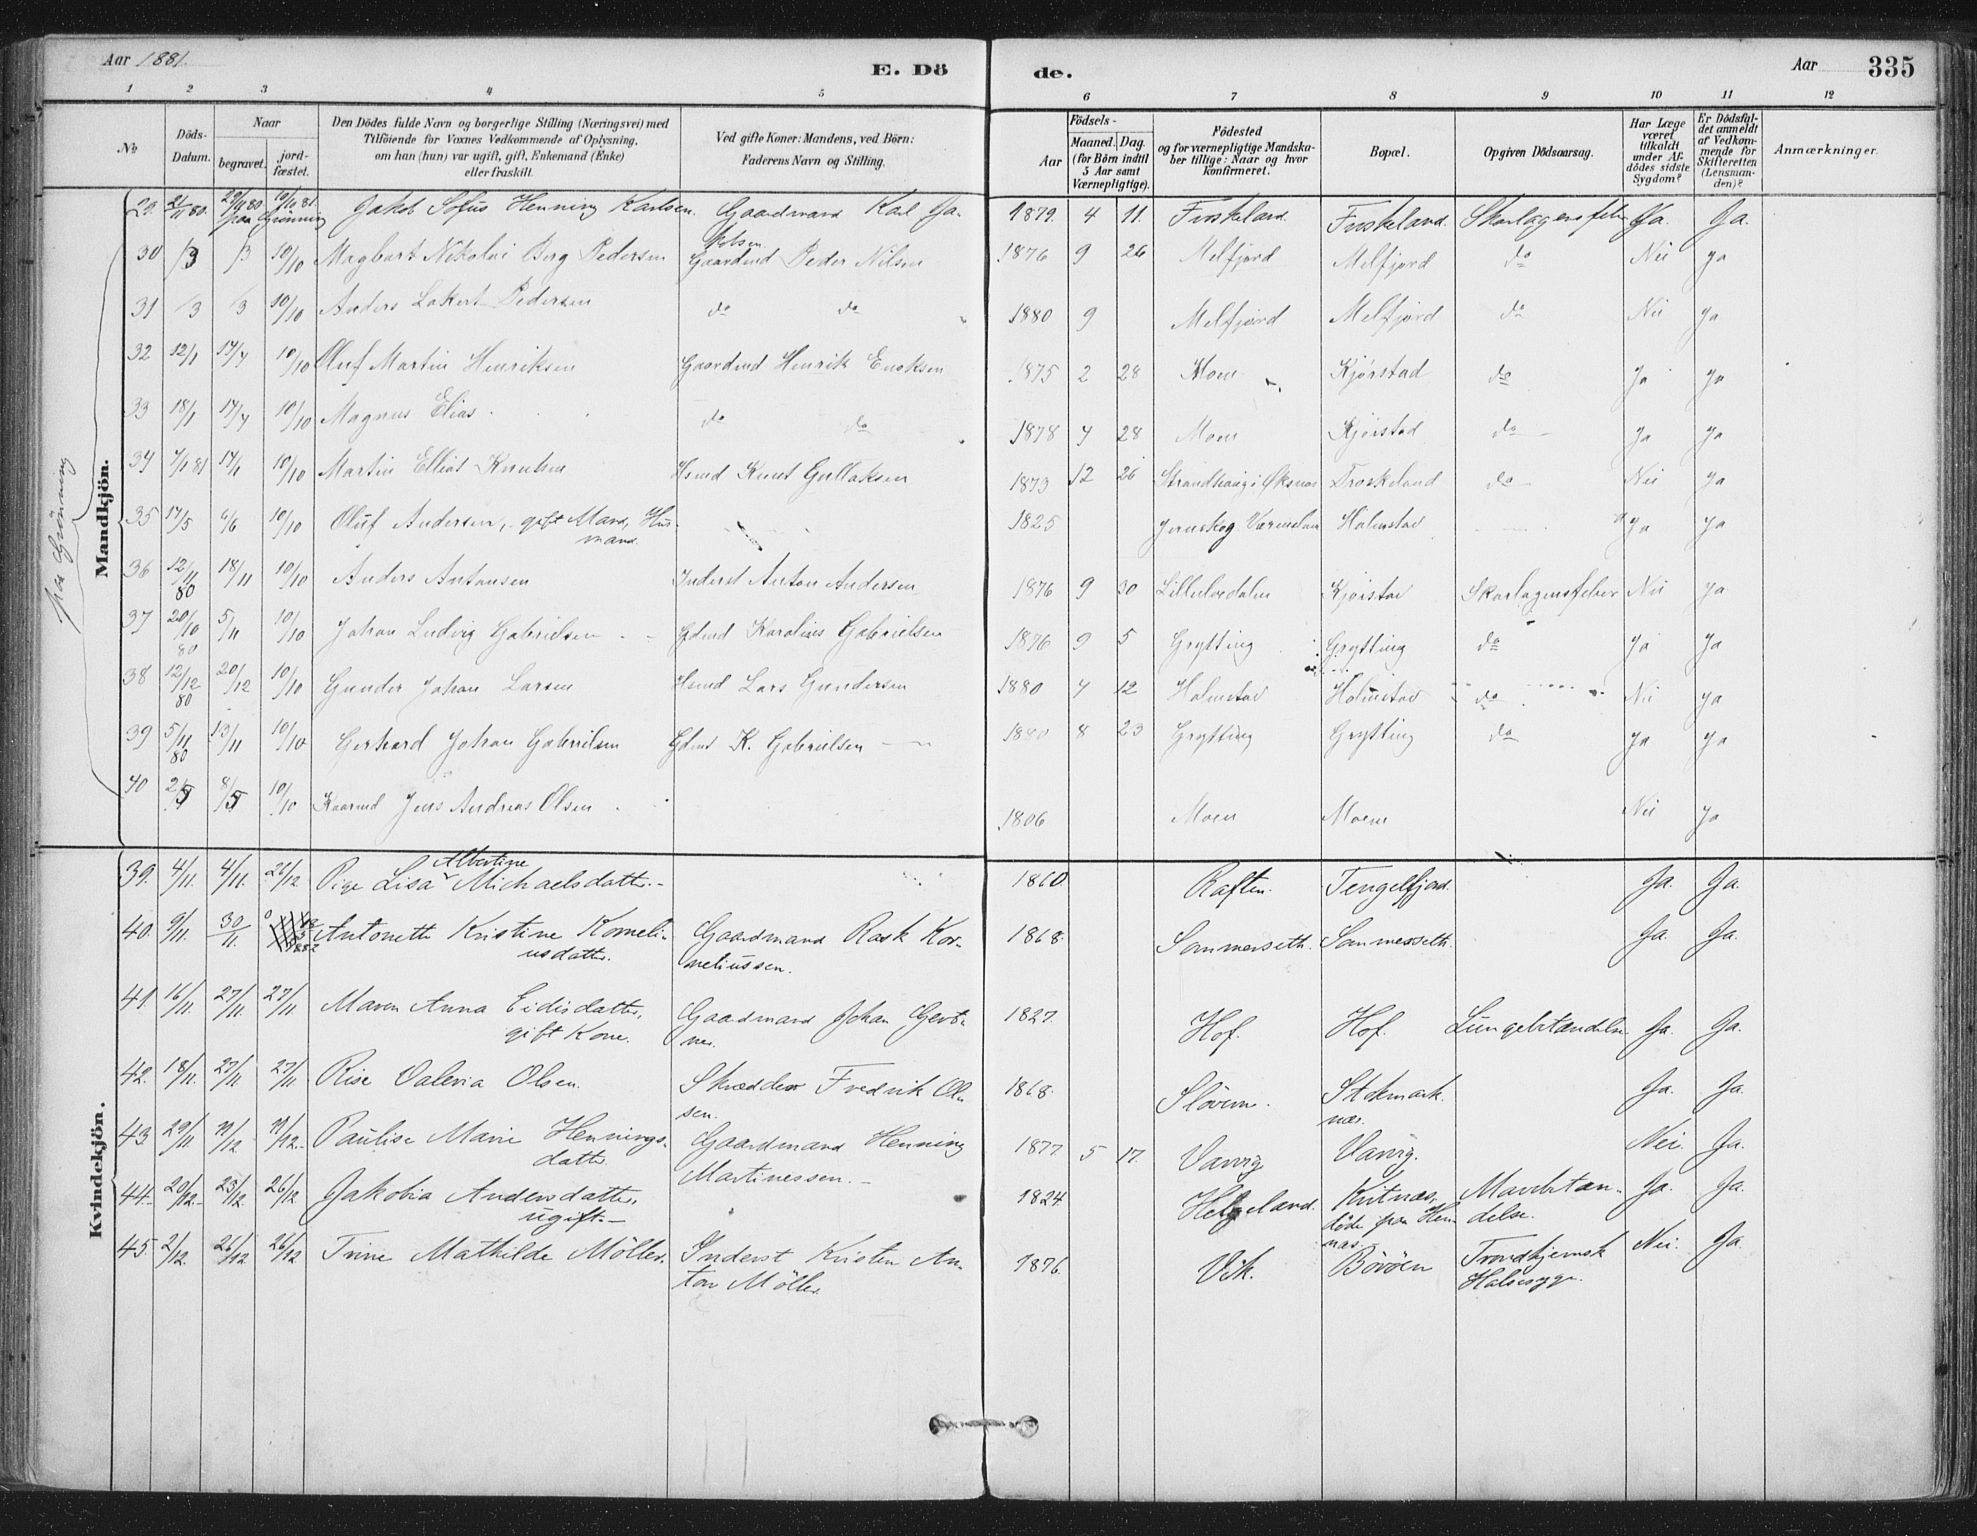 Aar 1881.
E. Dö
de.
Aar
335
1 2 3 4 5 6 7 8 9 10 11 12
No
Döds-Datum.
Naar
begravet.
jord-fæstet.
Den Dödes fulde Navn og borgerlige Stilling (Næringsvei) med
Tilföiende for Voxnes Vedkommende af Oplysning,
om han (hun) var ugift, gift, Enkemand (Enke)
eller fraskilt.
Ved gifte Koner: Mandens, ved Börn:
Faderens Navn og Stilling.
Födsels-
Aar
Maaned. Dag.
(for Börn indtil
5 Aar samt
Værnepligtige).
Födested
og for værnepligtige Mandska-
ber tillige: Naar og hvor
konfirmeret.
Bopæl.
Opgiven Dödsaarsag.
Har Læge
været
tilkaldt
under Af-
dödes sidste
Sygdom?
Er Dödsfal-
det anmeldt
af Vedkom-
mende for
Skifteretten
(Lensman-
den)?
Anmærkninger.
Mandkjön.
paa Grönning
29. 21/11 80. 29/11 80 10/10 81 Jakob Sofus Henning Karlsen. Gaardmand Karl Ja- 1879. 4 11. Froskeland. Froskeland. Skarlagensfeber Ja. Ja.
paa Grönning kobsen
30 /3 /3 10/10 Magbart Nikolai Berg Pedersen Gaardmd Peder Nilsen 1876 9 26 Melfjord Melfjord do Nei ja
31 /3 /3 10/10 Anders Lakert Pedersen do do 1880 9 Melfjord Melfjord do Nei ja
32 12/1 17/4 10/10 Oluf Martin Henriksen Gaardmd Henrik Enoksen 1875 2 28 Moen Kjørstad do Ja ja
33 18/1 17/4 10/10 Magnus Elias do do 1878 4 28 Moen Kjørstad do Ja ja
34 7/1 81 14/1 10/10 Martin Elliot Knutsen Hsmd Knut Gullaksen 1873 12 26 Strandhaug i Øksnes Froskeland do Nei ja
35 17/5 6/6 10/10 Oluf Andersen, gift Mand, Hus- 1825 Jernskog Værmeland Holmstad Ja ja
mand.
36 12/11 80 18/11 10/10 Anders Antonsen Inderst Anton Andersen 1876 9 30 Kjørstad Skarlagensfeber Nei ja
37 20/10 80 5/11 10/10 Johan Ludvig Gabrielsen Gdmd Karolius Gabrielsen 1876 9 5 Grytting Grytting do ja ja
38 12/12 80 20/12 10/10 Gunder Johan Larsen Hsmd Lars Gundersen 1880 4 12 Holmstad Holmstad do Nei ja
39 5/11 80 13/11 10/10 Gerhard Johan Gabrielsen Gdmd K. Gabrielsen 1880 8 23 Grytting Grytting do ja ja
40 2/5 8/5 10/10 Kaarmd Jens Andreas Olsen 1806 Moen Moen Nei ja
Kvindekjön.
39. 4/11. 4/11. 26/12 Pige Lisa Albertine Michaelsdatter.- 1860. Raften. Tengelfjord. Ja. Ja.
40. 9/11. 30/11. Antonette Kristine Korneli- Gaardmand Rask Kor- 1868. Sommerseth. Sommerseth. Ja. Ja.
usdatter. neliussen.
41 16/11. 27/11. 27/11. Maren Anna Eidisdatter, Gaardmand Johan Gert- 1827. Hof. Hof. Lungebetændelse Ja. Ja.
gift Kone. ner.
42. 18/11. 27/11. 27/11 Rise Valeria Olsen. Skrædder Fredrik Ol- 1868. Slöveren. Stokmark- Ja. Ja.
sen. næs.
43 29/11. 11/12 11/12. Pauline Marie Hennings- Gaardmand Henning 1877 5 17. Varvig Varvig. Nei. Ja.
datter Martinessen.-
44. 20/12. 25/12. 26/12 Jakobia Andersdatter, 1824 Helgeland. Kvitnæs, Mavebetæn- Ja. Ja.
ugift.- döde paa Hen- delse.
næs.
45. 2/12. 26/12 26/12 Trine Mathilde Möller. Inderst Kristen An- 1876. Vik. Böröen Trondhjemsk Nei. Ja.
ton Möller. Halssyge.